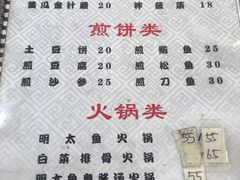 黄瓜金针蘑 20 拌菠菜 18
煎饼类
土豆饼 20 煎鲅鱼 25
煎豆腐 20 煎松鱼 30
煎沙参 25 煎刀鱼 30
火锅类
明太鱼火锅 55 55
白菜排骨火锅 65
明太鱼 酱汤火锅
55